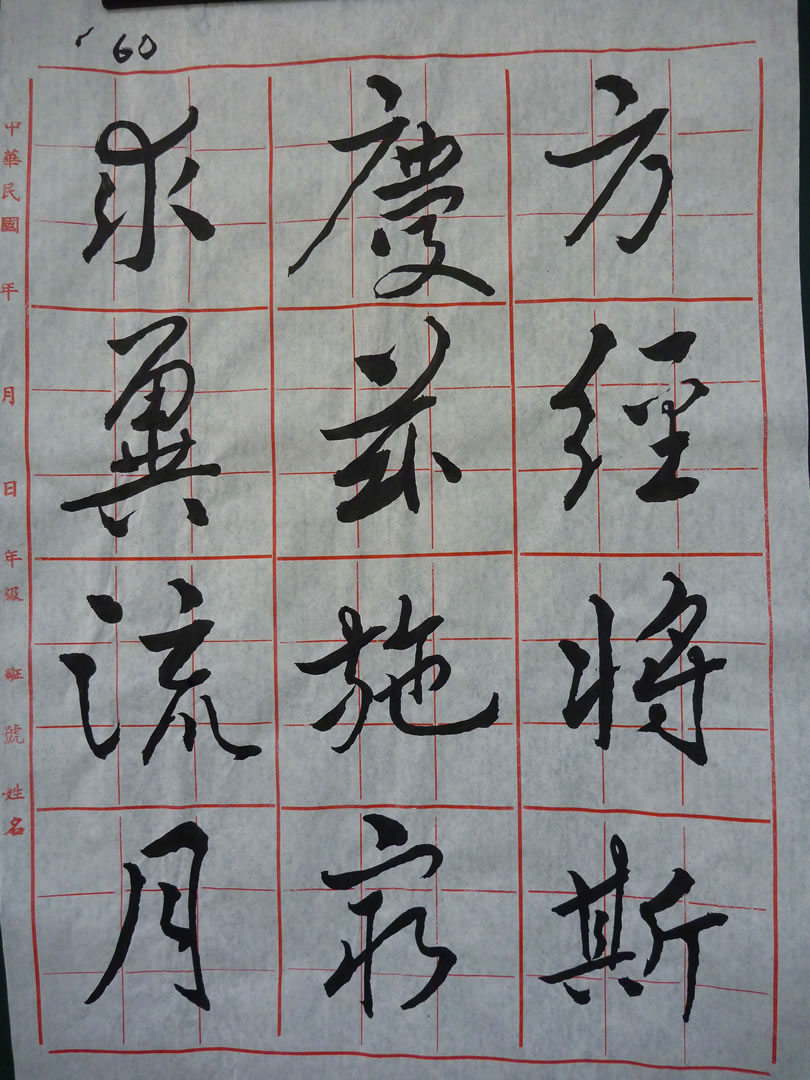 60
方經將斯
慶茲施
求冀流月
中華民國 年 月 日 年級 班 號 姓名